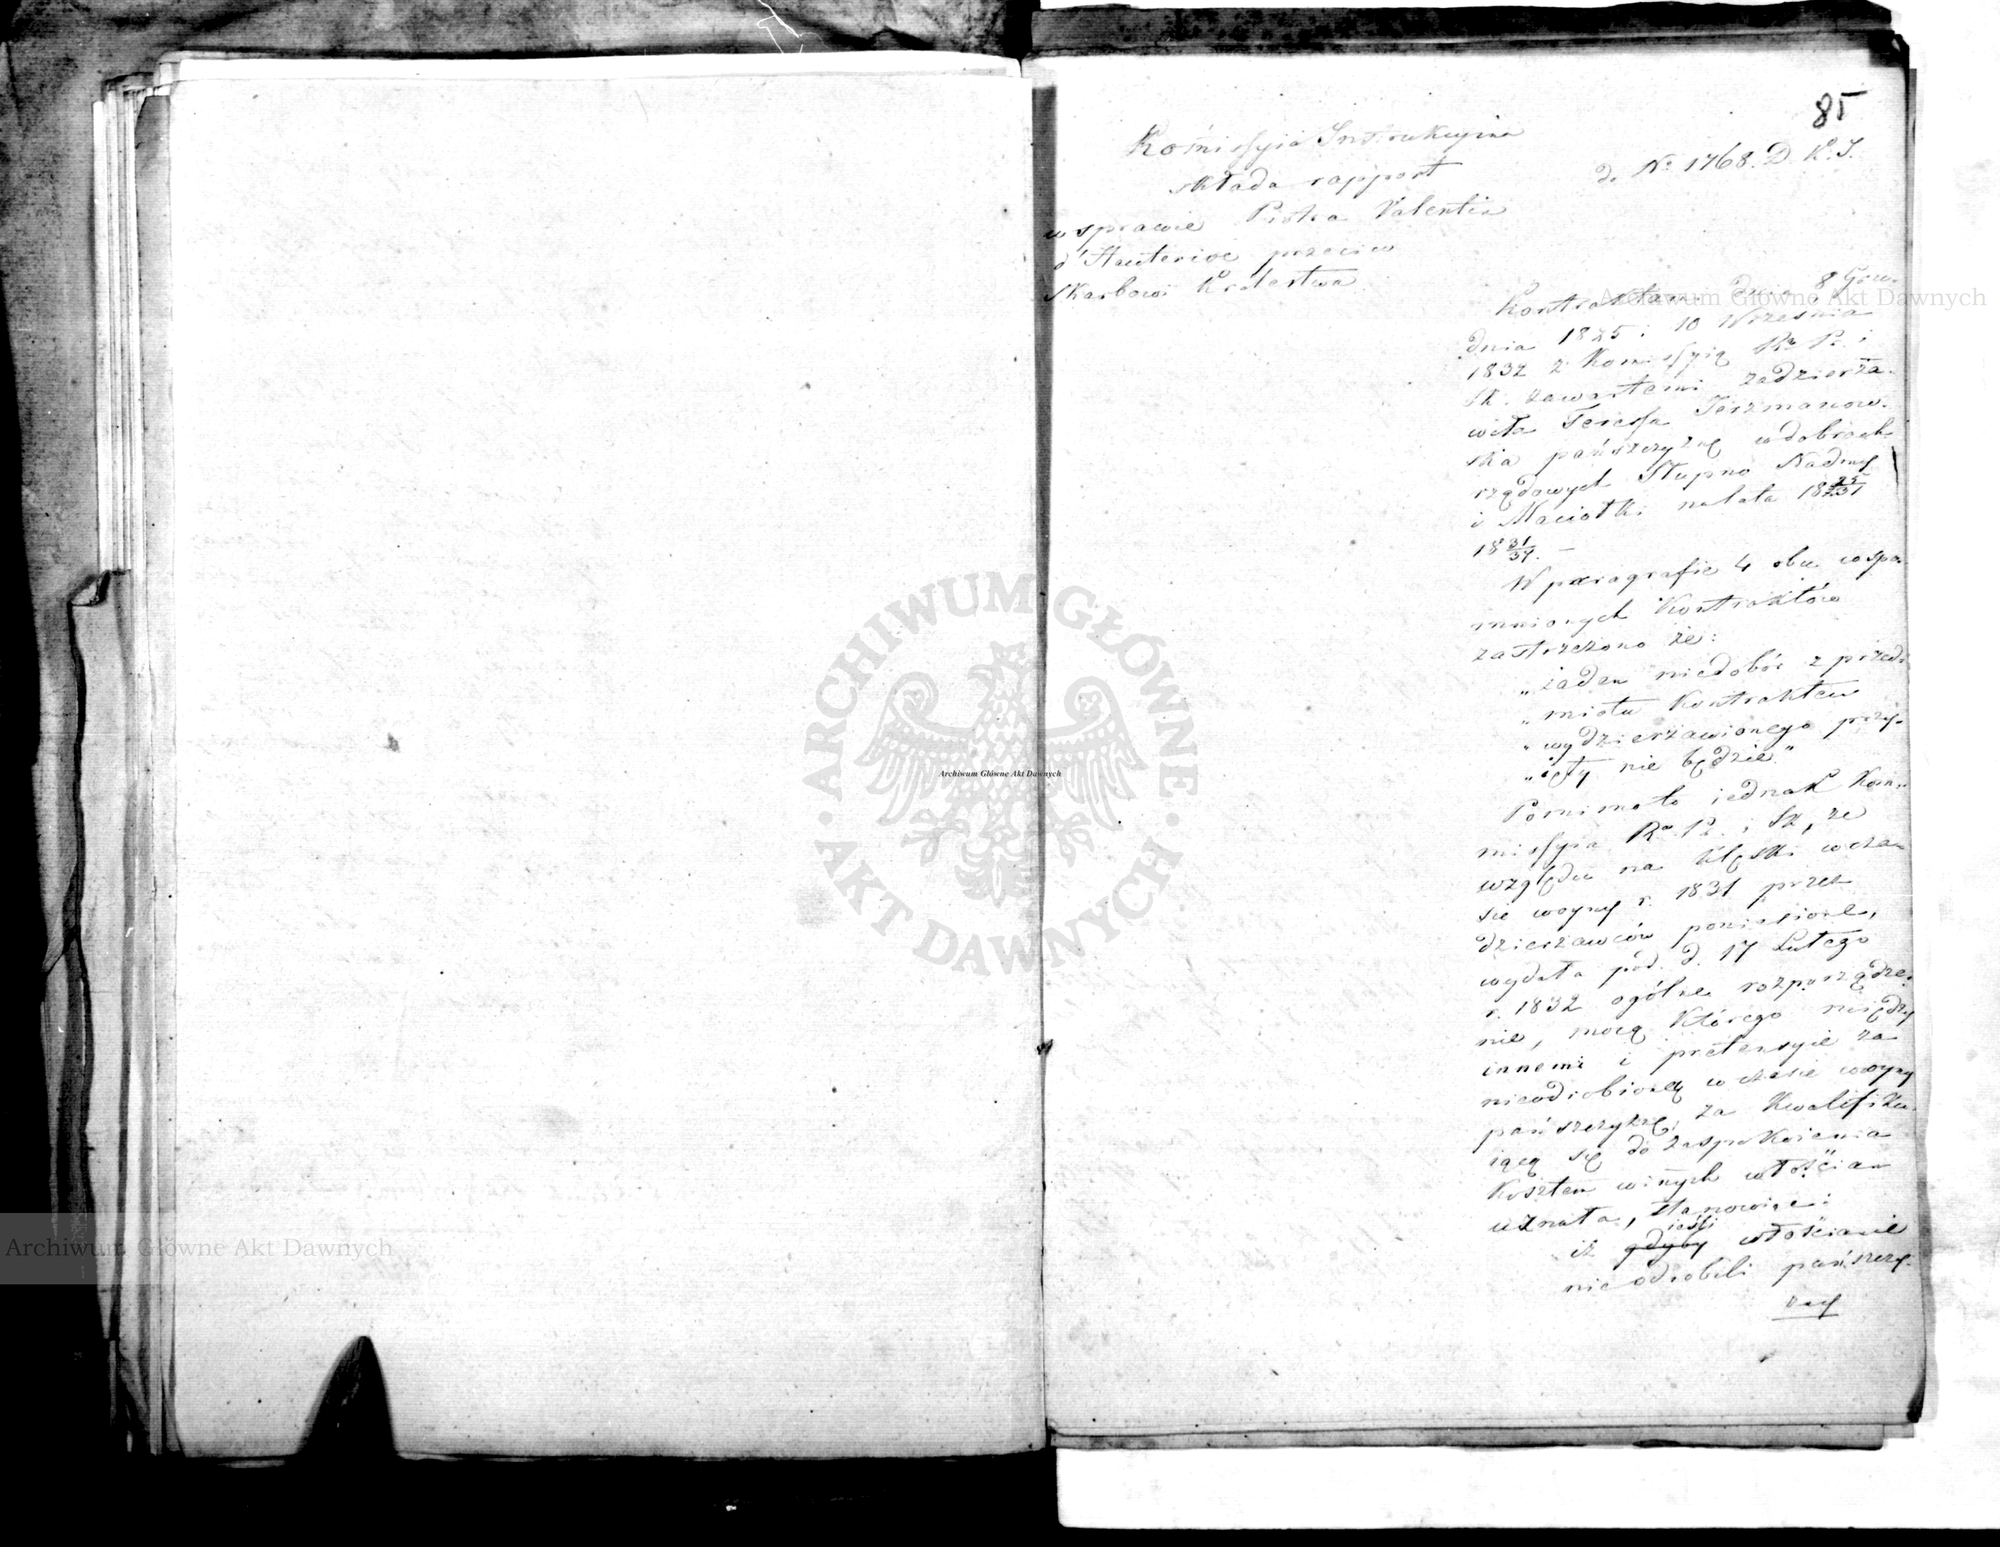 85
Kommissyia Instrukcyina
składa rapport
w sprawie Piotra Valentin
d'Hauterive przeciw
Skarbowi Królestwa.
d. No 1768. D. K. I.
Kontraktami dnia 8 Gru-
dnia 1825 i 10 Września
1832 z Kommissyią Rz. P. i
Sk. zawartemi zadzierża-
wiła Teressa Jerzmanow-
ska pańszczyznę w dobrach
rządowych Słupno Nadmy
i Maciołki na lata 18 25/31
18 31/37. —
W paragrafie 4 obu wspo-
mnionych Kontraktów
zastrzeżono że:
„żaden niedobór z przed-
„miotu Kontraktem
„wydzierżawionego przy-
„ięty nie będzie."
Pomimo to iednak Kom-
missyia Rz. P. i Sk, ze
względu na klęski w cza-
sie woyny r. 1831 przez
dzierżawców poniesione,
wydała pod. d. 17 Lutego
r. 1832 ogólne rozporządze-
nie, mocą którego między
innemi i pretensyie za
nieodrobioną w czasie woyny
pańszczyznę, za kwalifiku-
iącą się do zaspokoienia
kosztem winnych włościan
uznała, stanowiąc:
iż gdyby ieśli włościanie
nie odrobili pańszczy-
zny
Archiwum Główne Akt Dawnych
ARCHIWUM GŁÓWNE AKT DAWNYCH
Archiwum Główne Akt Dawnych
Archiwum Główne Akt Dawnych
Archiwum Główne Akt Dawnych